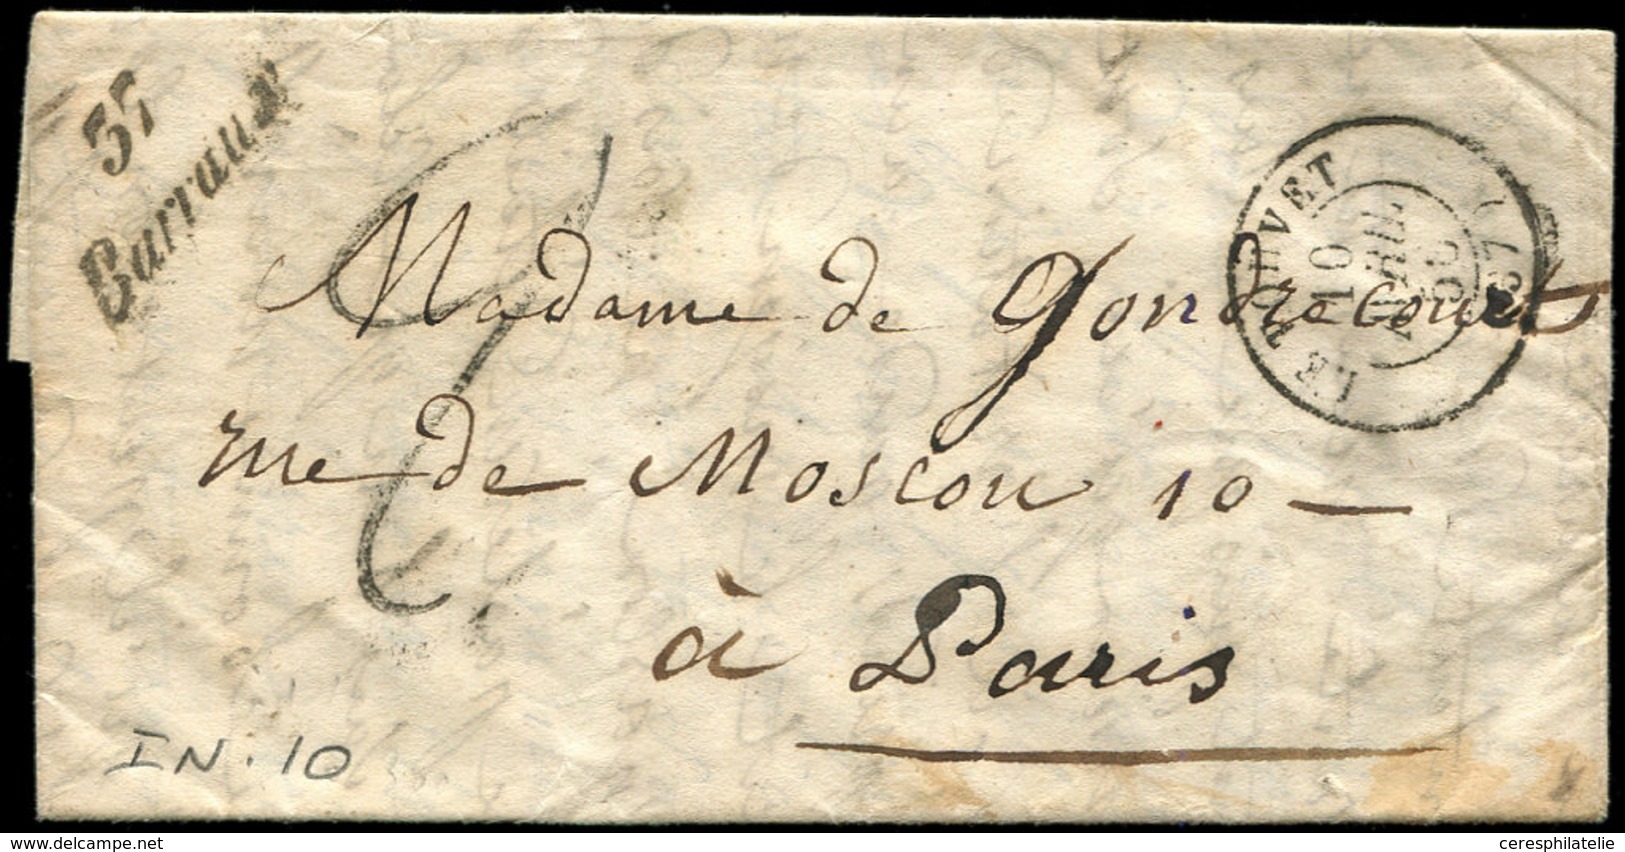 37
Barraux
LE TOUVET (37)
10
AVRIL
50
Madame de Gondrecourt
rue de Moscou 10 —
à Paris
IN. 10
delcampe.net
ceresphilatelie